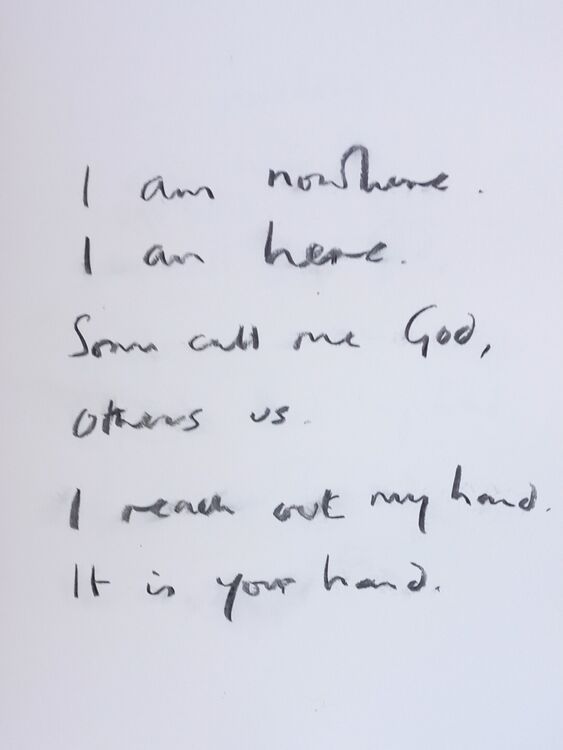 I am nowhere.
I am here.
Some call me God,
others us.
I reach out my hand.
It is your hand.